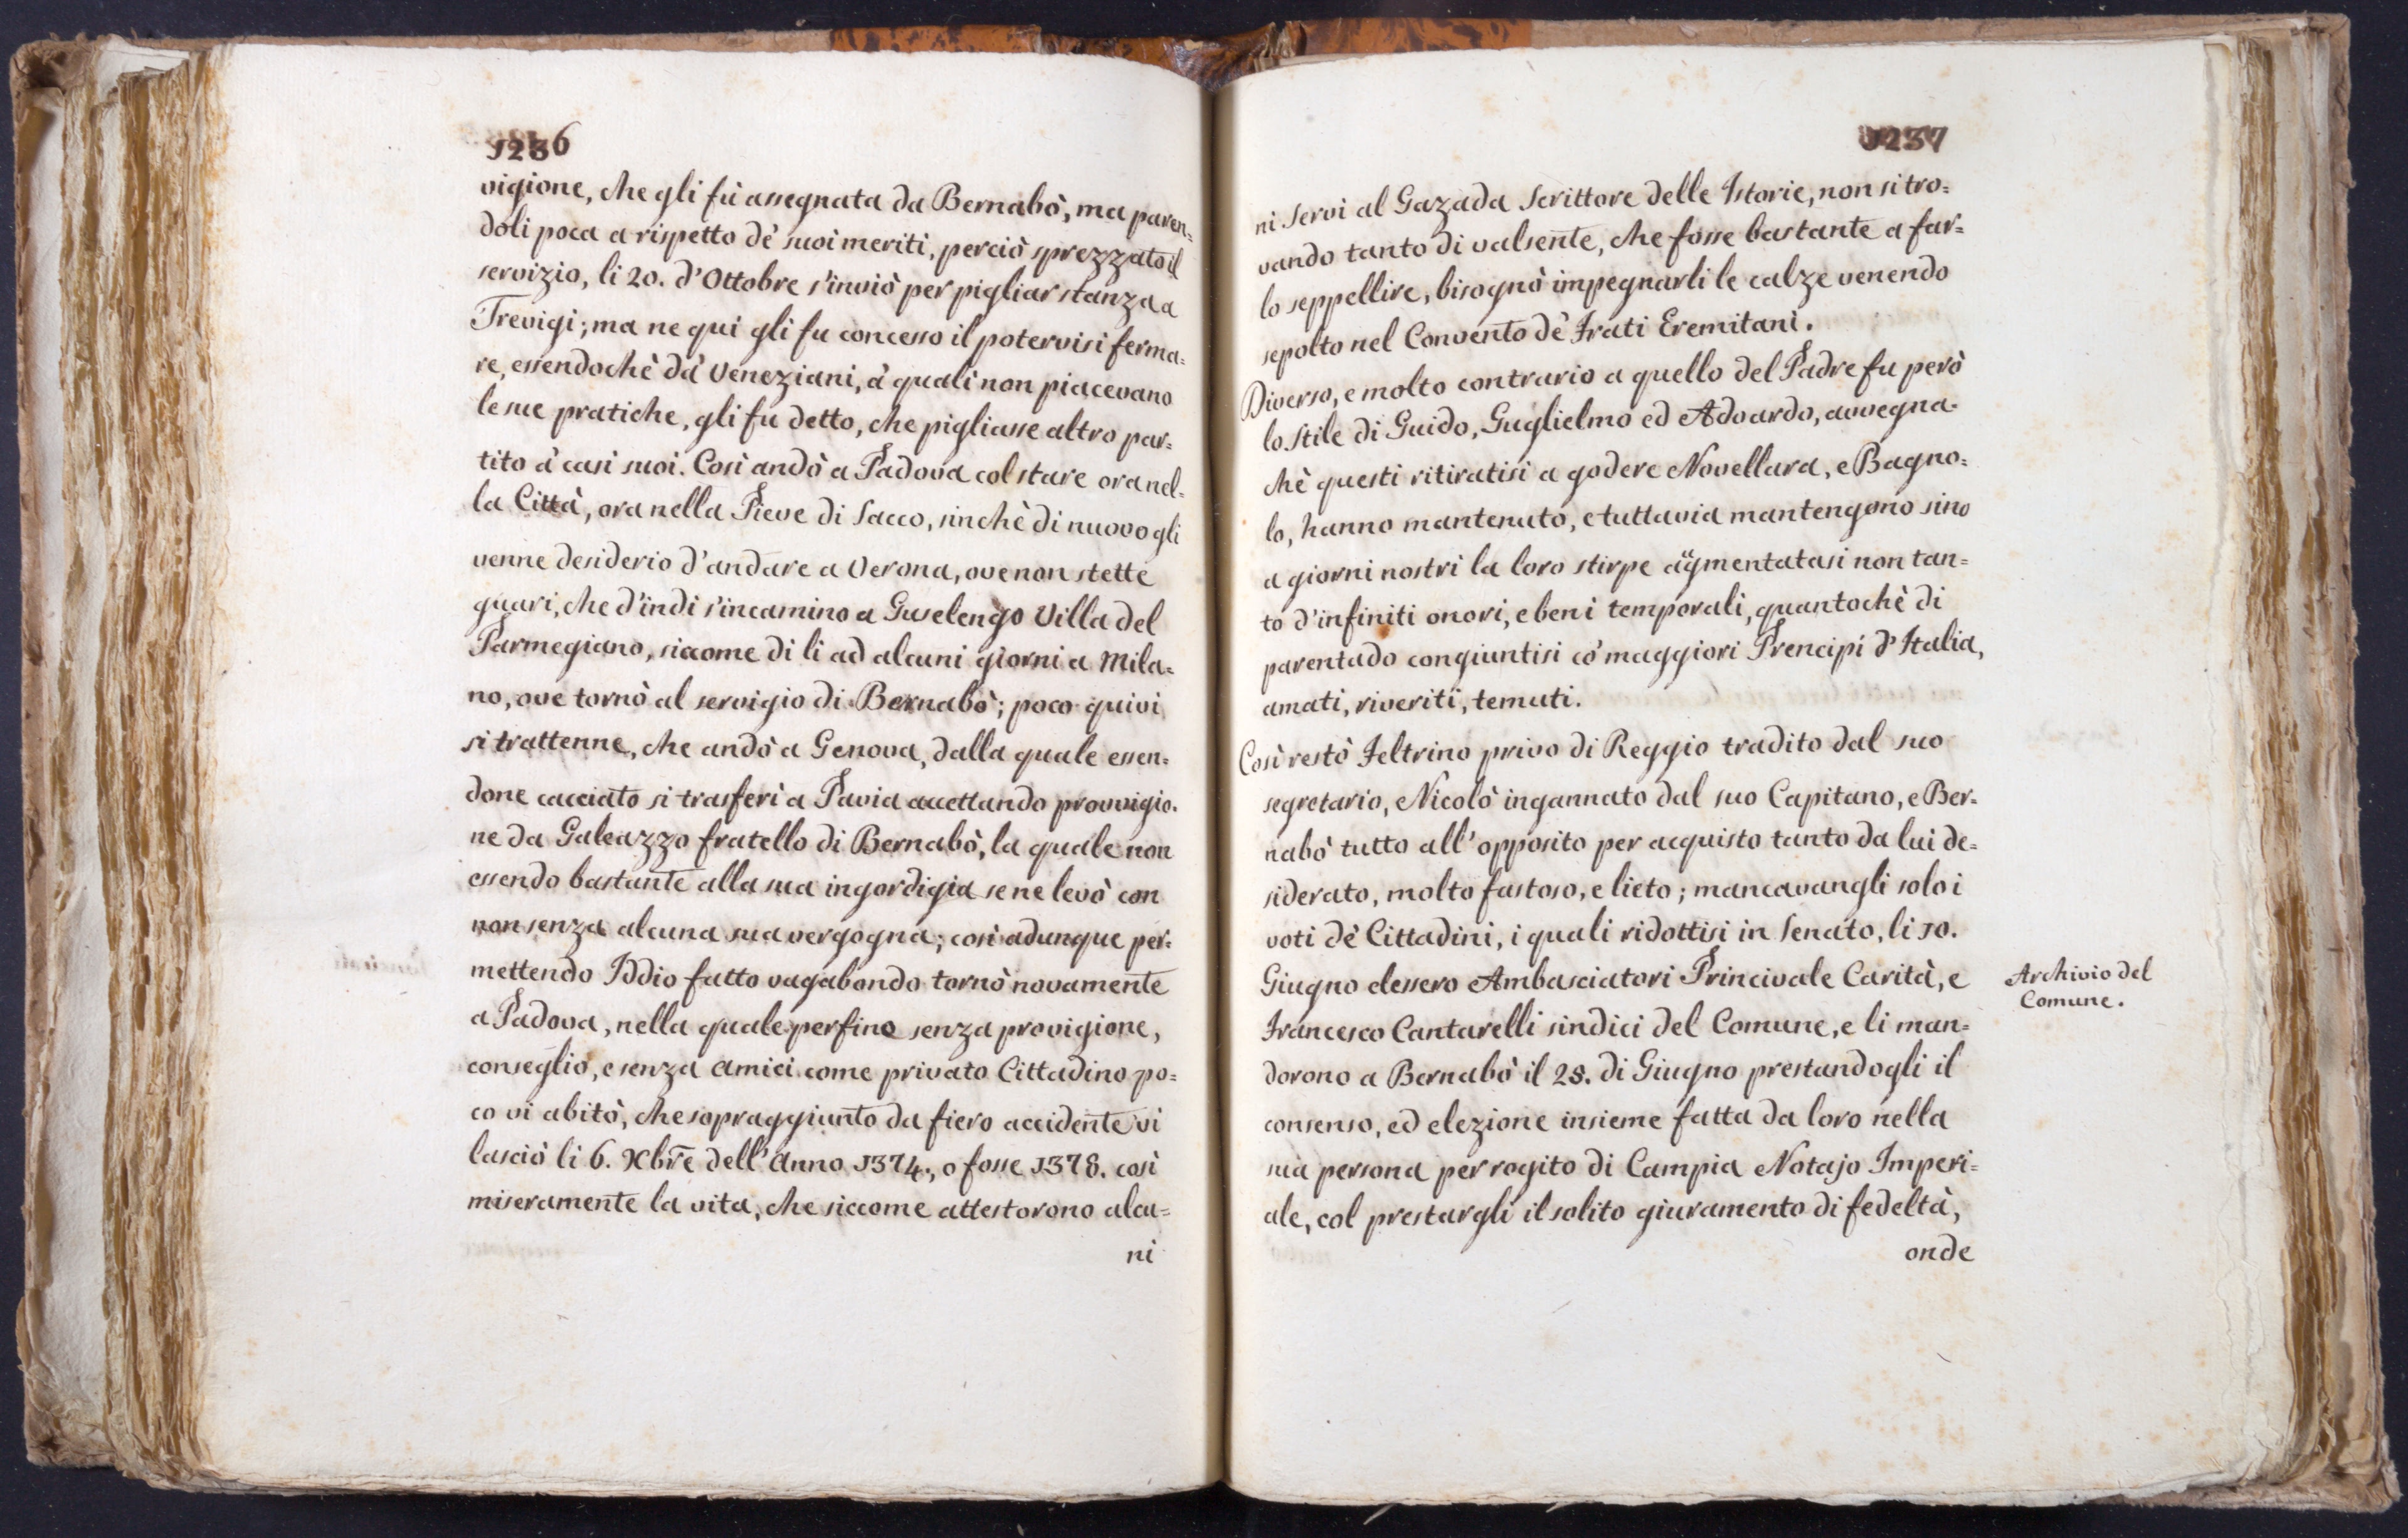 1236
vigione, che gli fù assegnata da Bernabò, ma paren=
doli poca a rispetto de' suoi meriti, perciò sprezzato il
servizio, li 20. d'Ottobre s'inviò per pigliar stanza a
Trevigi; ma ne qui gli fu concesso il potervisi ferma=
re, essendochè da' Veneziani, a' quali non piacevano
le sue pratiche, gli fu detto, che pigliasse altro par=
tito a' casi suoi. Così andò a Padova col stare ora nel=
la Città, ora nella Pieve di Sacco, sinchè di nuovo gli
venne desiderio d'andare a Verona, ove non stette
guari, che d'indi s'incamino a Guselengo Villa del
Parmegiano, siccome di li ad alcuni giorni a Mila=
no, ove tornò al servigio di Bernabò; poco quivi
si trattenne, che andò a Genova, dalla quale essen=
done cacciato si trasferì a Pavia accettando provvigio=
ne da Galeazzo fratello di Bernabò, la quale non
essendo bastante alla sua ingordigia se ne levò con
non senza alcuna sua vergogna; così adunque per=
mettendo Iddio fatto vagabondo tornò novamente
a Padova, nella quale perfino senza provigione,
conseglio, e senza amici come privato Cittadino po=
co vi abitò, che sopraggiunto da fiero accidente vi
lasciò li 6. Xbre dell'Anno 1374., o fosse 1378. così
miseramente la vita, che siccome attestorono alcu=
ni
1237
ni Servi al Gazada Scrittore delle Istorie, non si tro=
vando tanto di valsente, che fosse bastante a far=
lo seppellire, bisognò impegnarli le calze venendo
sepolto nel Convento de' Frati Eremitani.
Diverso, e molto contrario a quello del Padre fu però
lo Stile di Guido, Guglielmo ed Adoardo, avvegna=
chè questi ritiratisi a godere Novellara, e Bagno=
lo, hanno mantenuto, e tuttavia mantengono sino
a giorni nostri la loro stirpe augmentatasi non tan=
to d'infiniti onori, e beni temporali, quantochè di
parentado congiuntisi co' maggiori Prencipi d'Italia,
amati, riveriti, temuti.
Così restò Feltrino privo di Reggio tradito dal suo
segretario, Nicolò ingannato dal suo Capitano, e Ber=
nabò tutto all'opposito per acquisto tanto da lui de=
siderato, molto fastoso, e lieto; mancavangli solo i
voti de' Cittadini, i quali ridottisi in Senato, li 10.
Giugno elessero Ambasciatori Princivale Carità, e
Francesco Cantarelli sindici del Comune, e li man=
dorono a Bernabò il 28. di Giugno prestandogli il
consenso, ed elezione insieme fatta da loro nella
sua persona per rogito di Campia Notajo Imperi=
ale, col prestargli il solito giuramento di fedeltà,
onde
Archivio del
Comune.